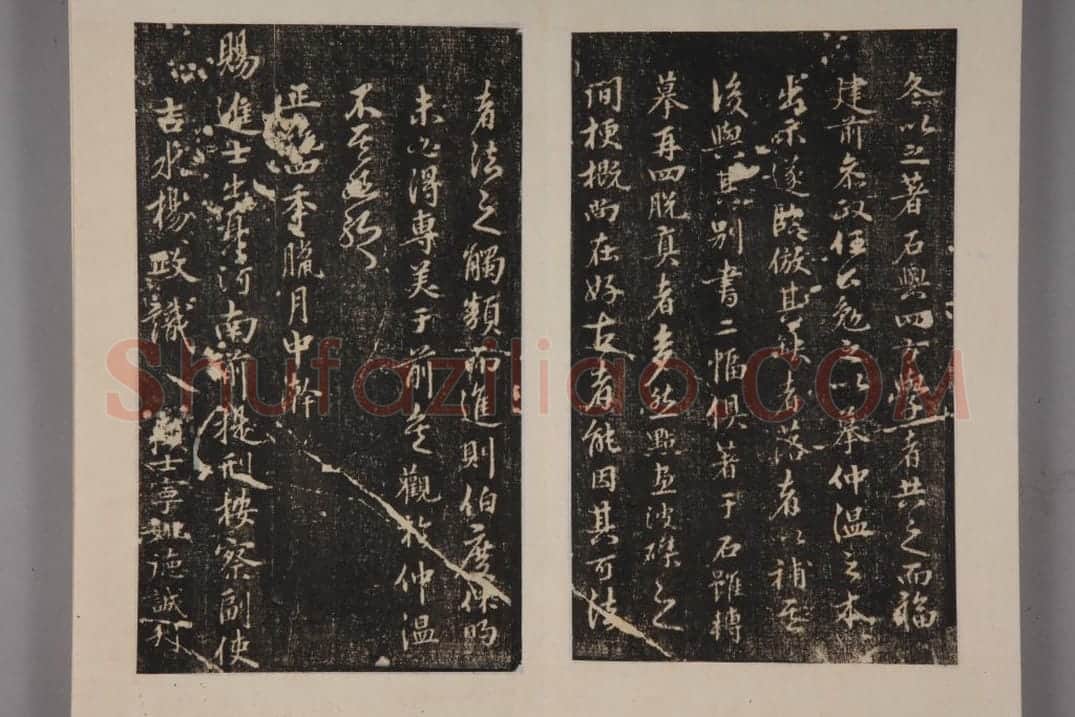 冬以之著石與四方學者共之而福
建前參政任公勉之以摹仲温之本
出示遂臨倣其缺者落者以補於
後與其別書二幅俱著于石雖轉
摹再四脱真者多然點畫波磔之
间梗概尚在好古者能因其可法
者法之觸類而進則伯度休明
未必得專美于前矣觀於仲温
不其然邪
正統四季臘月中幹
賜進士出身河南前提刑按察副使
吉水楊政識 士亨姚德誠刊
Shufaziliao.COM